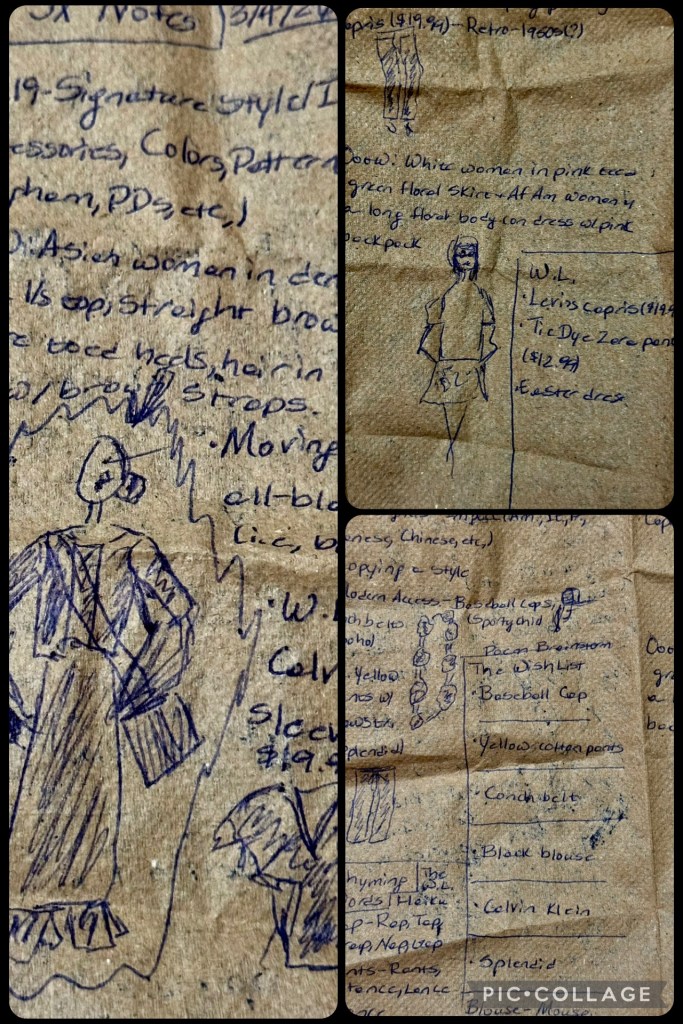 Notes 3/4/20
19-Signature Style/I
essories, Colors, Pattern
phem, PDs, etc,)
Asian women in den
l/s top, straight brow
toed heels, hair in
/brow straps.
• Moving
all-bla
(i.e., b
• W.
Calv
Sleev
$19.9
apris ($19.99)-Retro-1950s(?)
Ooow: White woman in pink tee &
green floral skirt + Af Am woman in
a long floral body con dress w/ pink
backpack
W.L.
• Levins capris ($19.9
• Tie Dye Zara pan
($12.99)
• Easter dress
onese, Chinese, etc,)
opying a style
Modern Access-Baseball caps,
(Sporty chic)
ch belts
oho)
Yellow
nts w/
Splendid)
Poem Brainstorm
The Wish List
• Baseball Cap
• Yellow cotton pants
• Conch belt
• Black blouse
• Calvin Klein
• Splendid
Blouse-Mouse,
hyming
ords/Haiku
The W.L.
op-Rap, Tap,
rap, Nap, Gap
nts-Rants,
tance, Lance
Cap
Ooo
gr
a l
bac
PIC•COLLAGE